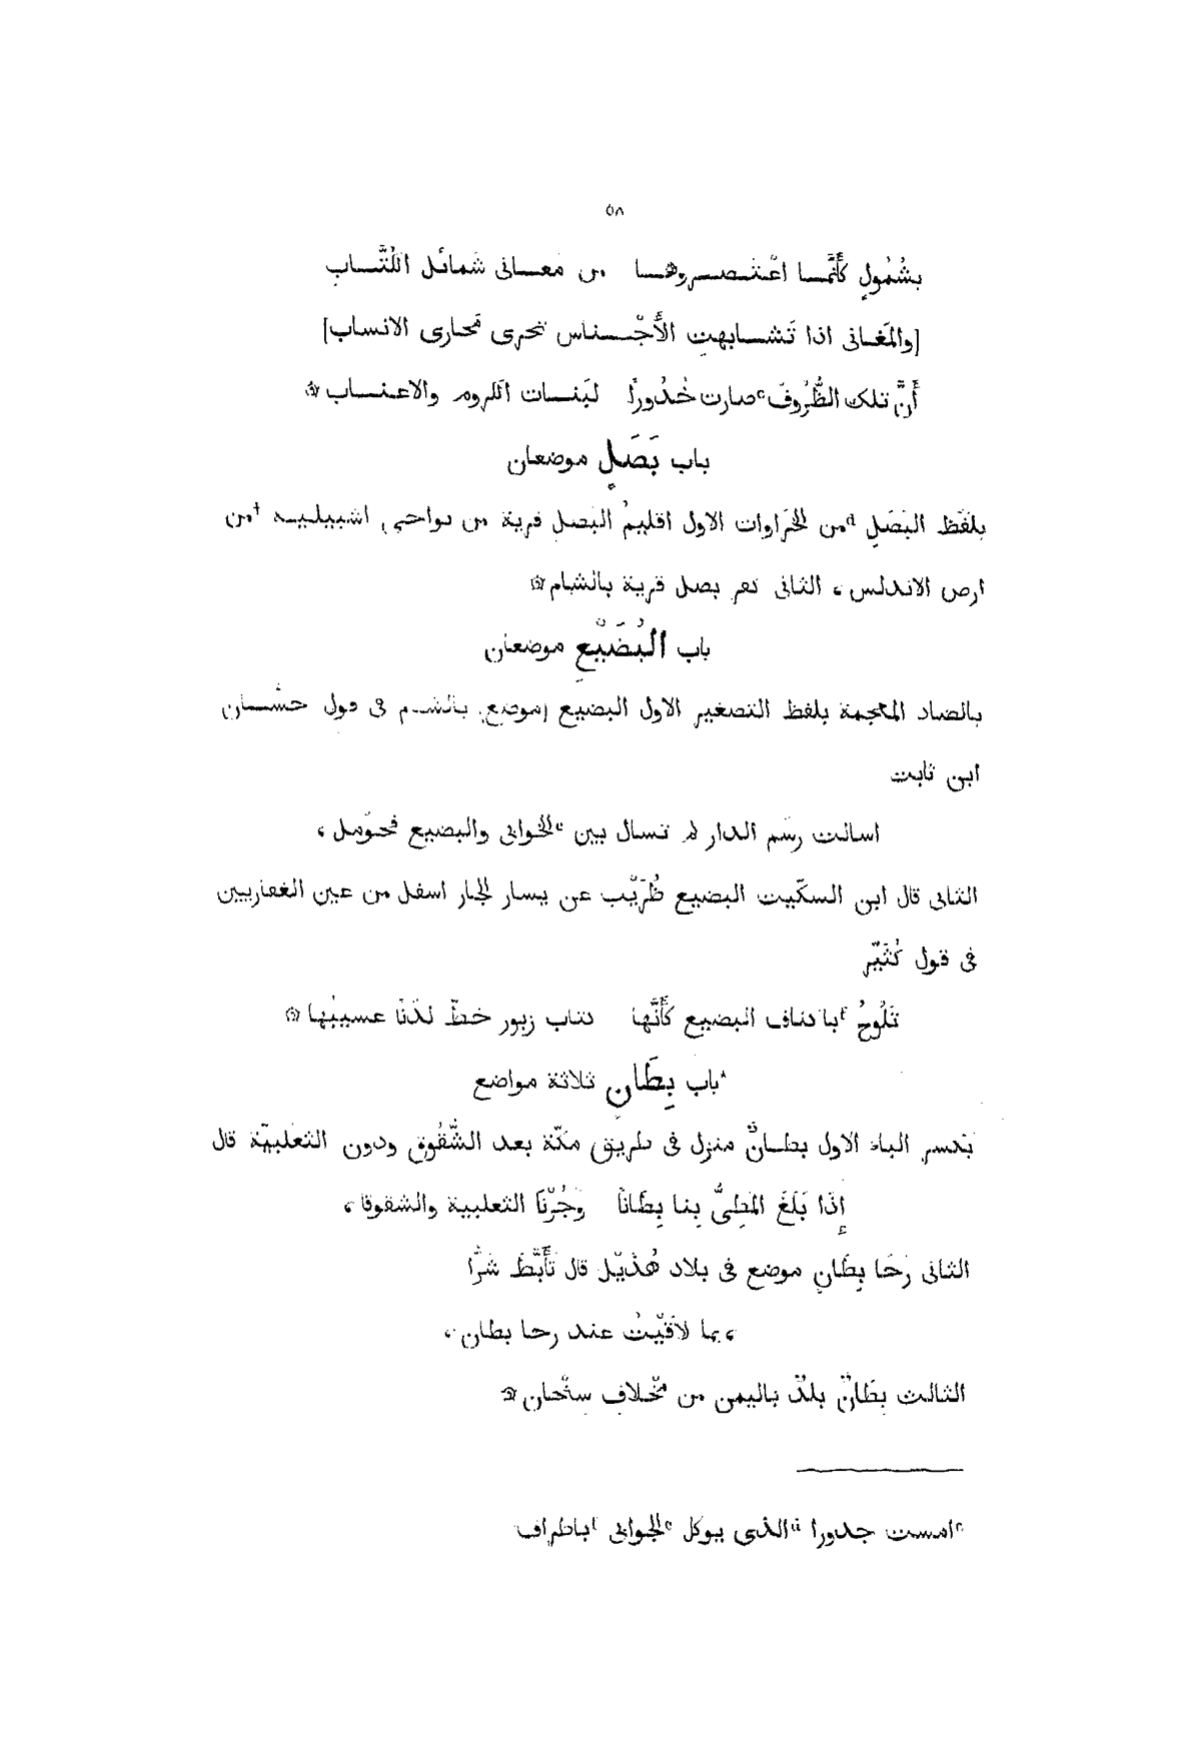 ٥٨
بشُمُولٍ كأَنَّمـا اعْتـصـروهـا من مَعـانى شَمائل الكُتَّـاب
[والمَغـانى اذا تَشـابهتِ الأَجْـنـاس تجرى مَجـارى الانساب]
أَنَّ تلك الظُّرُوفَ °صارت خُدُورًا لبَنـات الكروم والاعنـاب ۞
باب بَصَلٍ موضعان
بلَفْظ البَصَلِ ª من الخَرَاوات الاول اقليمُ البصل قرية من نواحى اشبيلية †من
ارض الاندلس، الثانى بصل قرية بالشام ۞
باب البُضَيْعِ موضعان
بالضاد المعجمة بلفظ التصغير الاول البضيع [موضع] بالشـام فى قول حسّان
ابن ثابت
اسالت رسْم الدار لم تسال بين °الخوابى والبضيع فحَوْمل،
الثانى قال ابن السكّيت البضيع ظُرَيْب عن يسار الجار اسفل من عين الغفاريين
فى قول كُثَيِّر
تَلُوحُ ‎ᶠباكناف البضيع كأَنَّها كتاب زبور خطّ لَدْنًا عسيبُها ۞
باب بِطَانٍ ثلاثة مواضع
بكسر الباء الاول بطـانٌ منزل فى طريق مكّة بعد الشُّقُوق ودون الثعلبيّة قال
إِذَا بَلَغَ المَطِىُّ بِنا بِطَانًا وَجُزْنَا الثعلبية والشقوقا،
الثانى رَحَا بِطَانٍ موضع فى بلاد هُذَيْل قال تأَبَّطَ شَرًّا
، بما لاقَيْتُ عند رحا بطان،
الثالث بِطَانٌ بلدٌ باليمن من مخْلاف سنْحان ۞
° امست جدورا ª الذى يوكل ° الجوابى ᶠ باطراف